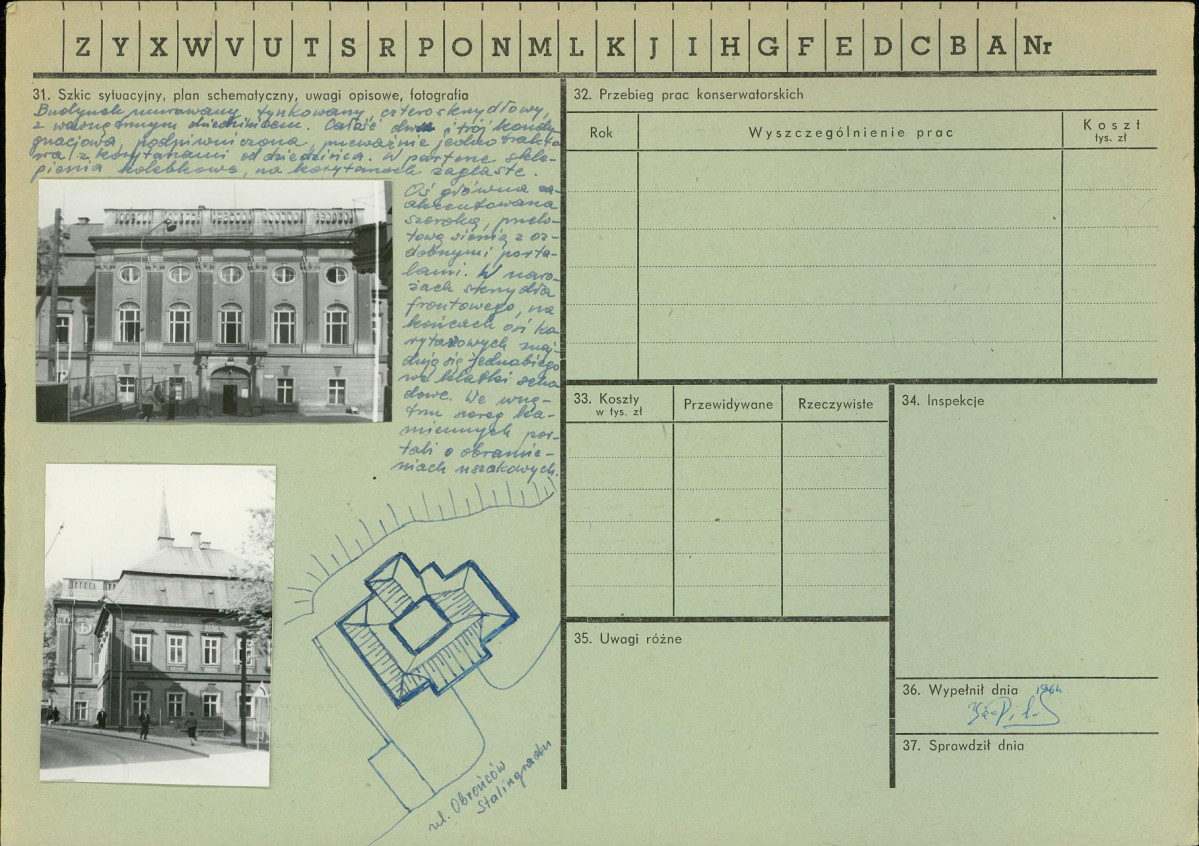 Z Y X W V U T S R P O N M L K J I H G F E D C B A Nr
31. Szkic sytuacyjny, plan schematyczny, uwagi opisowe, fotografia
Budynek murowany, tynkowany, czteroskrzydłowy,
z wewnętrznym dziedzińcem. Całość dwu i trój kondy
gnacjowa, podpiwniczona, przeważnie jednotrakto
wa z korytarzami od dziedzińca. W parterze skle-
pienia kolebkowe, na korytarzach żaglaste.
Oś główna za-
akcentowana
szeroką, przelo-
tową sienią z oz-
dobnymi porta-
lami. W naro-
żach skrzydła
frontowego, na
końcach osi ko
rytarzowych znaj
dują się jednobiego
we klatki scho
dowe. We wnę-
trzu szereg ka-
miennych por-
tali o obramie-
niach uszakowych.
ul. Obrońców
Stalingradu
32. Przebieg prac konserwatorskich
Rok
Wyszczególnienie prac
Koszt
tys. zł
33. Koszty
w tys. zł
Przewidywane
Rzeczywiste
34. Inspekcje
35. Uwagi różne
36. Wypełnił dnia 1964
37. Sprawdził dnia